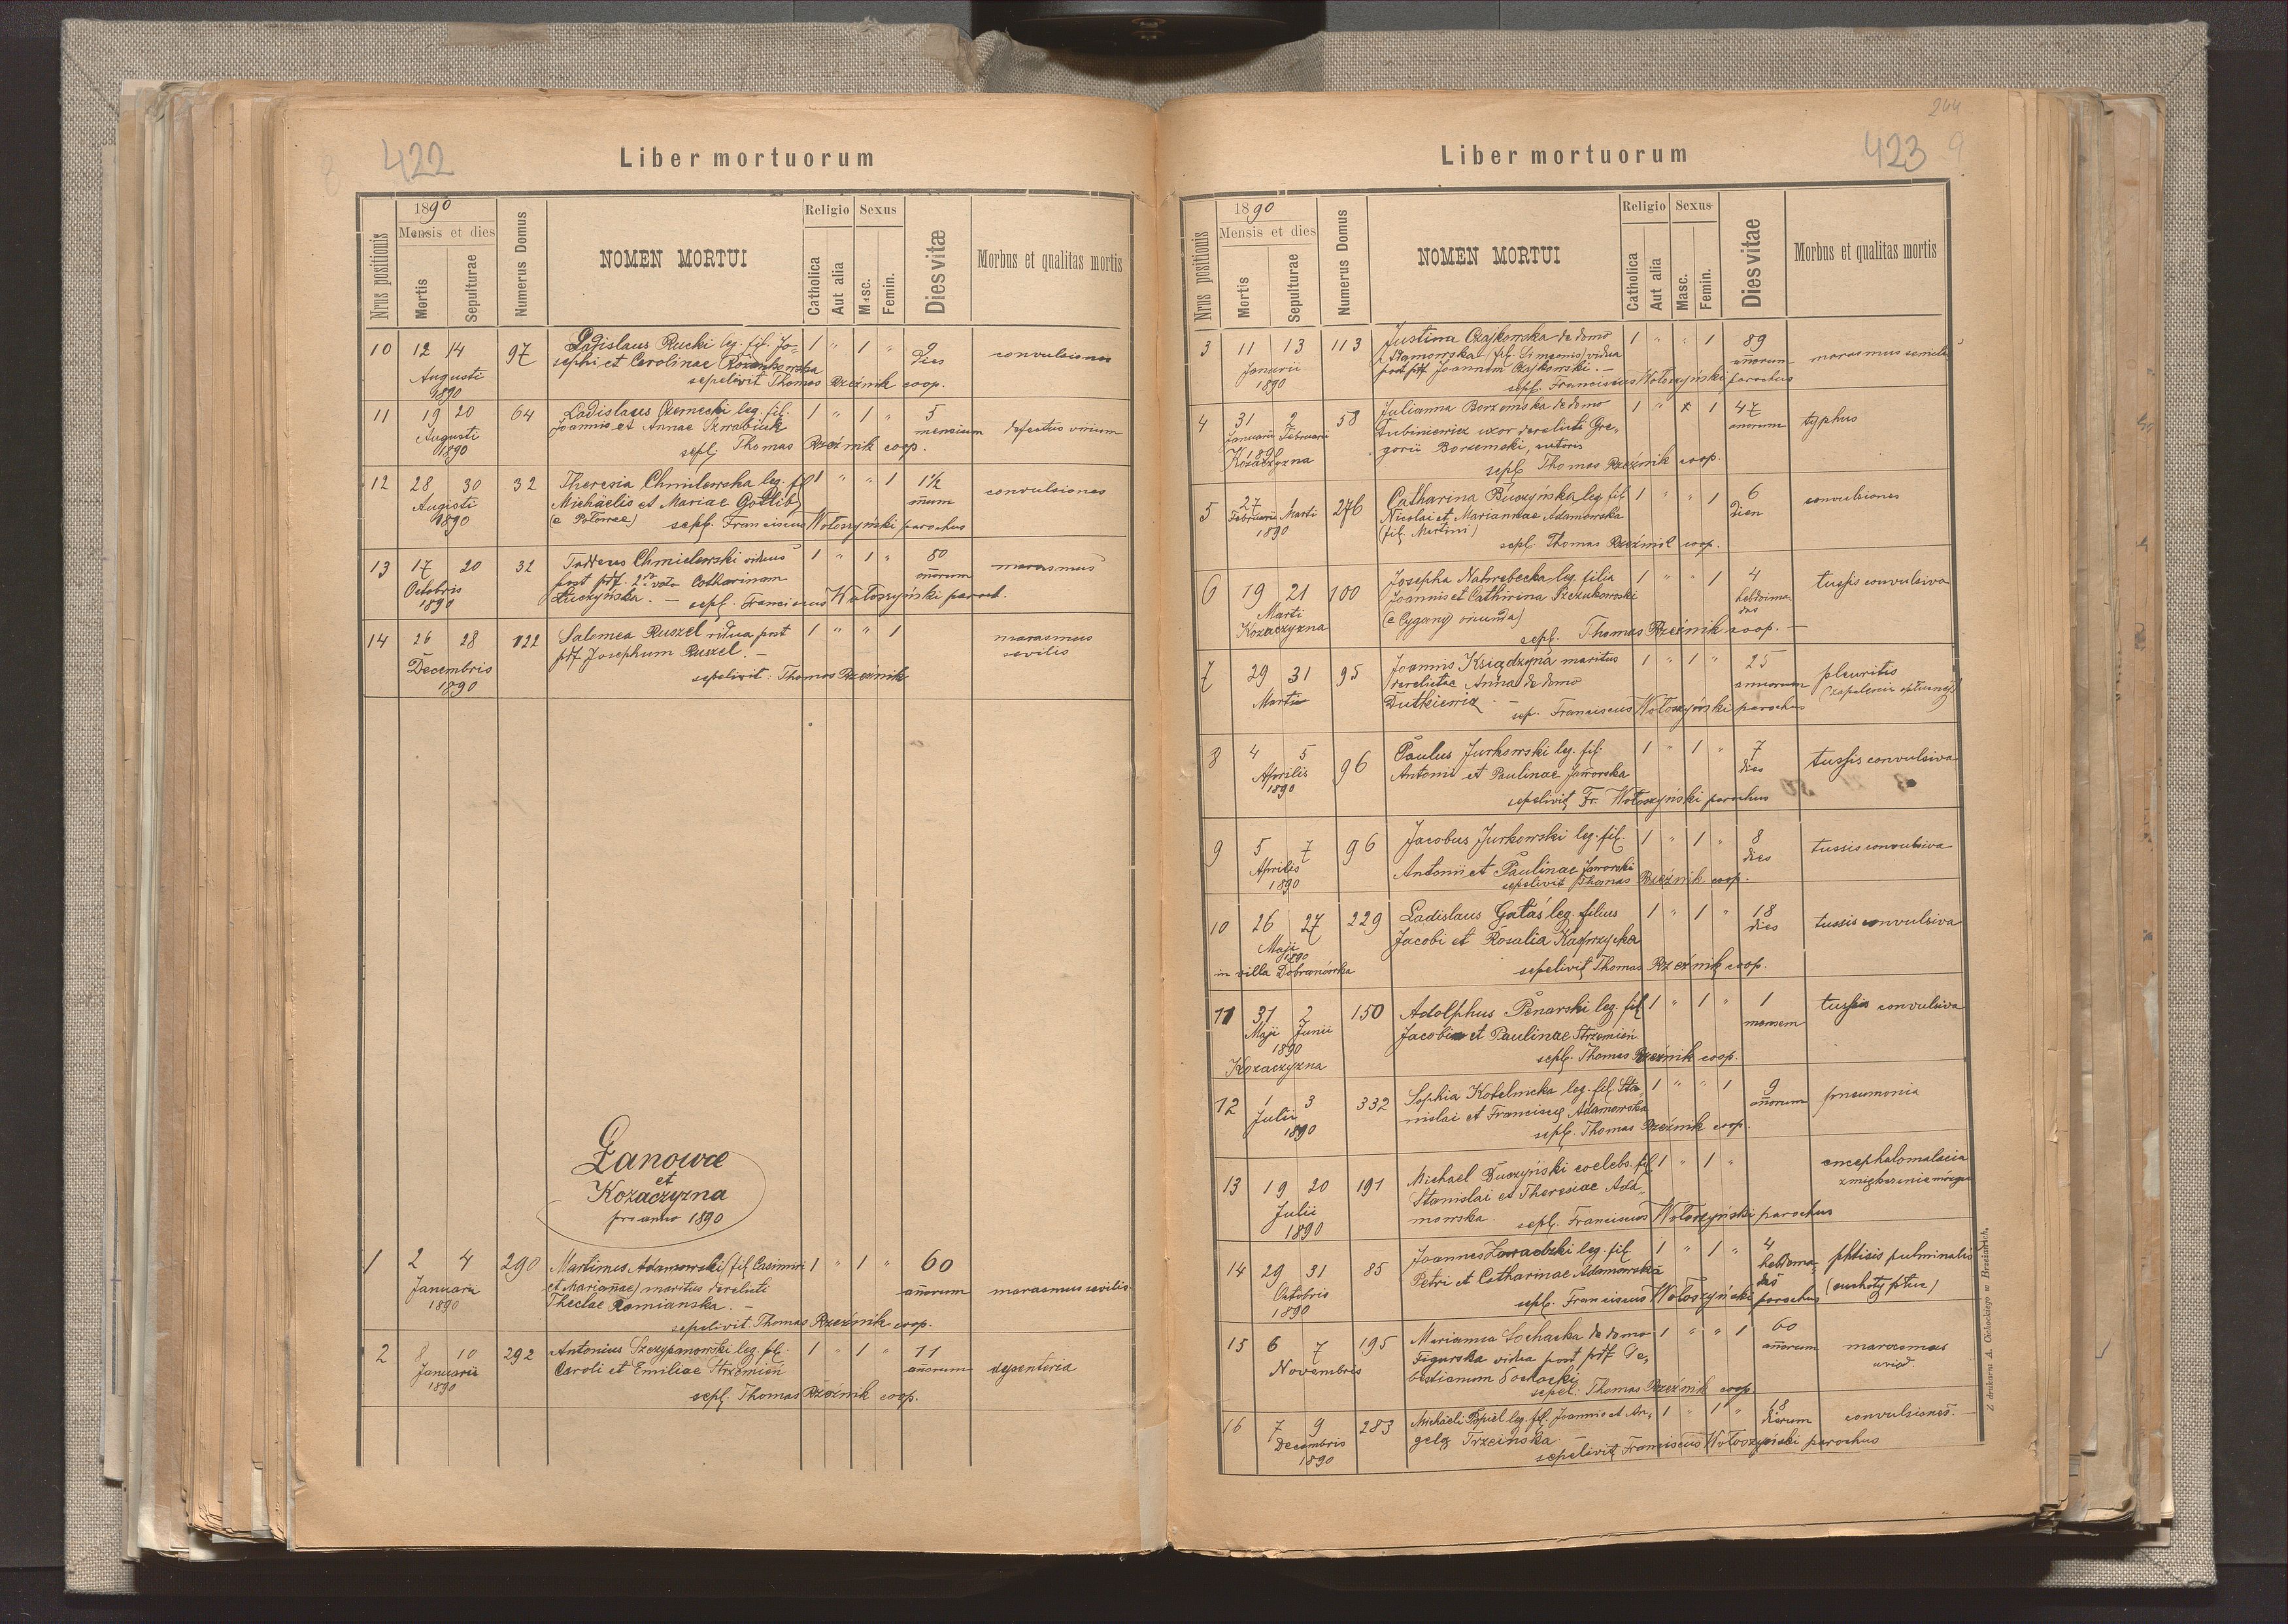 422
Liber mortuorum
1890
Nrus positionis
Mensis et dies
Mortis
Sepulturae
Numerus Domus
NOMEN MORTUI
Religio
Catholica
Aut alia
Sexus
Masc.
Femin.
Dies vitæ
Morbus et qualitas mortis
10 12 14 97 Ladislaus Rucki leg. fil. Jo- 1 " 1 " 9 convulsiones
Augusti sephi et Carolinae dies
1890 sepelivit Thomas Rzeźnik coop.
11 19 20 64 Ladislaus Czernecki leg. fil. 1 " 1 " 5 defectus virium
Augusti Joannis et Annae mensium
1890 sepl. Thomas Rzeźnik coop.
12 28 30 32 Theresia Chmilewska leg. fil 1 " " 1 1½ convulsiones
Augisti Michäelis et Mariae Gottlib añum
1890 (e Potowce) sepl. Franciscus Wołoszyński parochus
13 17 20 32 Tadeus Chmielewski viduus 1 " 1 " 80 marasmus
Octobris post pdf. 2do voto Catharinam añorum
1890 Łuczyńska. — sepl. Franciscus Wołoszyński paroch.
14 26 28 122 Salomea Ruszel vidua post 1 " " 1 marasmus
Decembris pdf Josephum Ruszel. — sevilis
1890 sepelivit Thomas Rzeźnik
Łanowce
et
Kozaczyzna
pro anno 1890
1 2 4 290 Martinus Adamowski (fil Casimiri 1 " 1 " 60 marasmus sevilis
Januarii et Mariañae) maritus derelicti añorum
1890 Theclae Romianska. —
sepelivit Thomas Rzeźnik coop.
2 8 10 292 Antonius Szczypanowski leg. fil. 1 " 1 " 11 desenteria
Januarii Caroli et Emiliae Strzemień añorum
1890 sepl. Thomas Rzeźnik coop.
244
423 9
Liber mortuorum
1890
Nrus positionis
Mensis et dies
Mortis
Sepulturae
Numerus Domus
NOMEN MORTUI
Religio
Catholica
Aut alia
Sexus
Masc.
Femin.
Dies vitae
Morbus et qualitas mortis
3 11 13 113 Justina Czajkowska de domo 1 " " 1 89 marasmus senilis
Januarii Adamowska (fil. Simeonis) vidua añorum
1890 post pdf. Joannem Czajkowski. —
sepl. Franciscus Wołoszyński parochus
4 31 2 58 Julianna Borzemska de domo 1 " x 1 47 typhus
Januarii Februarii Łubiniewicz uxor derelicti Gre- anorum
1890 gorii Borzemski, sutoris
Kozaczyzna sepl. Thomas Rzeźnik coop.
5 27 1 276 Catharina Buczyńska leg. fil 1 " " 1 6 convulsiones
Februarii Marti Nicolai et Mariannae Adamowska dien
1890 (fil. Martini)
sepl. Thomas Rzeźnik coop.
6 19 21 100 Josepha Nahrebecka leg. filia 1 " " 1 4 tussis convulsiva
Marti Joannis et Cathirina Szczukowski hebdoma-
Kozaczyzna (e Cygany oriunda) das
sepl. Thomas Rzeźnik coop. —
7 29 31 95 Joannis Książdzyna maritus 1 " 1 " 25 pleuritis
Martii derelictae Anna de domo annorum
Dutkiewicz — sep. Franciscus Wołoszyński parochus
8 4 5 96 Paulus Jurkowski leg. fil. 1 " 1 " 7 tussis convulsiva
Aprilis Antonii et Paulinae Jaworska dies
1890 sepelivit Fr. Wołoszyński parochus
9 5 7 96 Jacobus Jurkowski leg. fil. 1 " 1 " 8 tussis convulsiva
Aprilis Antonii et Paulinae Jaworski dies
1890 sepelivit Thomas Rzeźnik coop.
10 26 27 229 Ladislaus Gałaś leg. filius 1 " 1 " 18 tussis convulsiva
Maji Jacobi et Rosalia Kasprzycka dies
1890
in villa Dobranówka sepelivit Thomas Rzeźnik coop.
11 31 2 150 Adolphus Penarski leg. fil 1 " 1 " 1 tussis convulsiva
Maji Junii Jacobi et Paulinae Strzemień mensem
1890 sepl. Thomas Rzeźnik coop.
Kozaczyzna
12 1 3 332 Sophia Kotelnicka leg. fil. Sta- 1 " " 1 9 pneumonia
Julii nislai et Franciscę Adamowska añorum
1890 sepl. Thomas Rzeźnik coop.
13 19 20 191 Michael Buczyński coelebs. fil 1 " 1 " encephalomalacia
Julii Stanislai et Theresiae Ada-
1890 mowska. sepl. Franciscus Wołoszyński parochus
14 29 31 85 Joannes Zawadzki leg. fil. 1 " 1 " 4 phtisis pulminalis
Octobris Petri et Catharinae Adamowska hebdoma- (suchoty płuc)
1890 sepl. Franciscus Wołoszyński parochus das
15 6 7 195 Marianna Sochacka de domo 1 " " 1 60 marasmus
Novembris Figurska vidua post pdf Se- añorum
bastianum Sochacki
sepel. Thomas Rzeźnik coop
16 7 9 283 Michäeli Popiel leg. fil. Joannis et An- 1 " 1 " 18 convulsiones.
Decembris gelę Trzcińska dierum
1890 sepelivit Franciscus Wołoszyński parochus
Z drukarni A. Cichockiego w Brzeżanach.